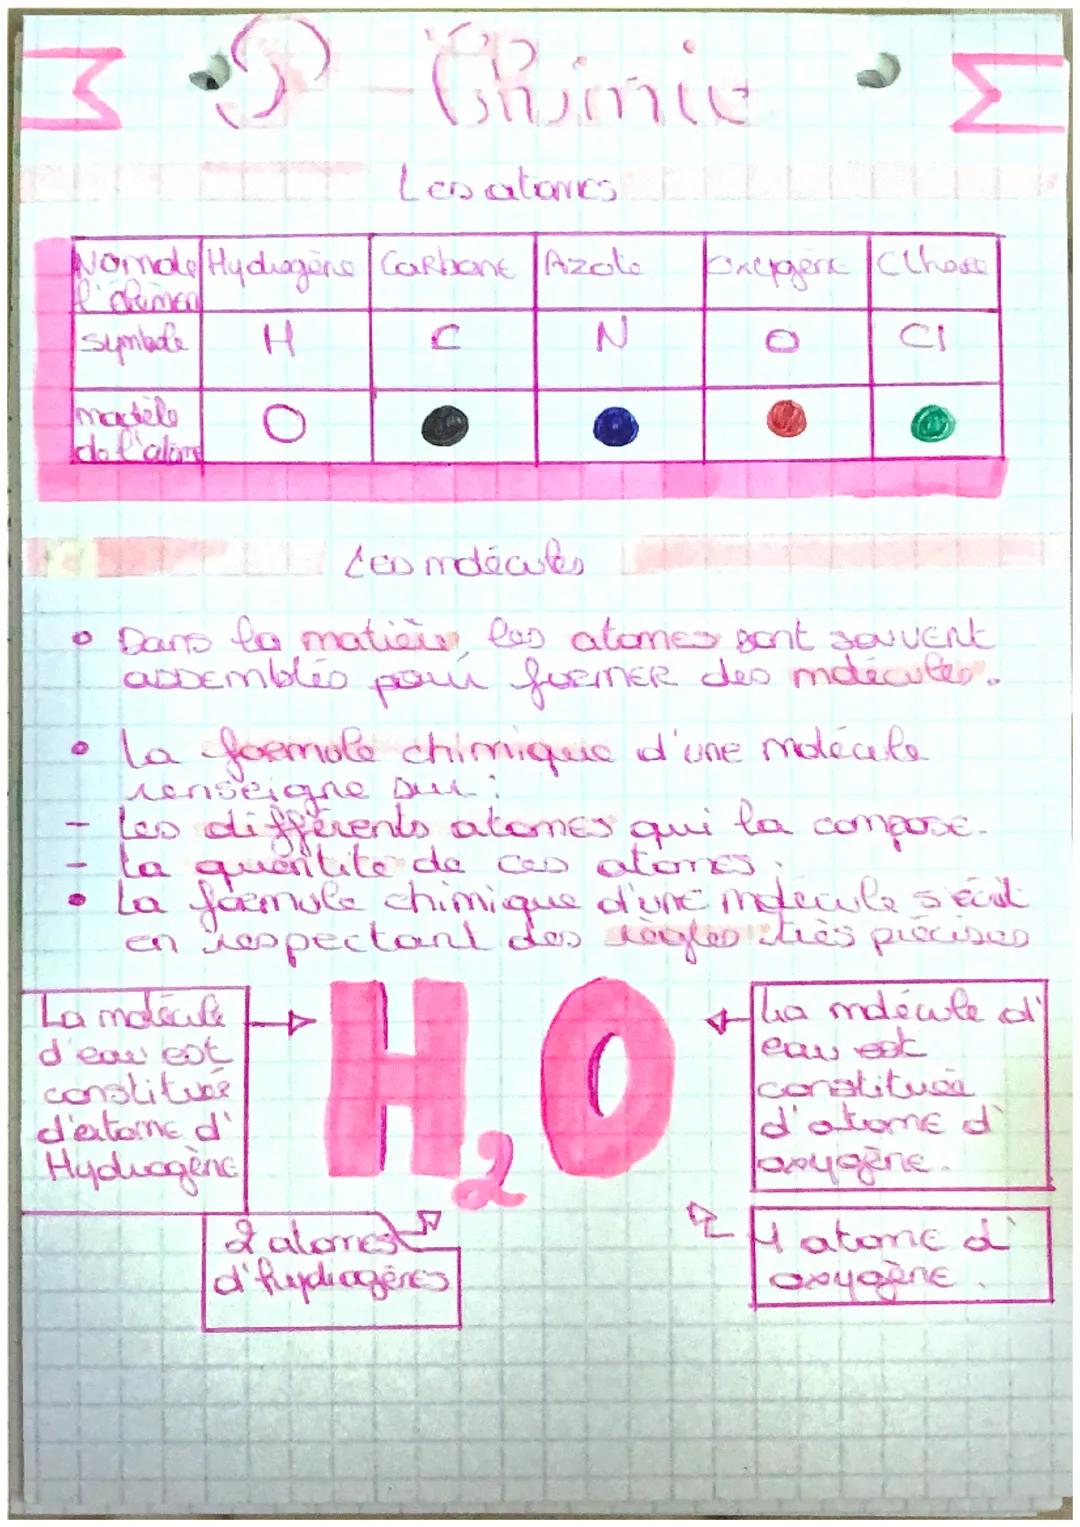 P-Chimie
Les atomes
Nom de Hydrogène Carbone Azote Oxygène Clhore
l'élémen
symbole H C N O Cl
modèle
de l'atom
Les molécules
• Dans la matière, les atomes sont souvent
assemblés pour former des molécules.
• La formule chimique d'une molécule
renseigne sur :
- Les différents atomes qui la compose.
- La quantité de ces atomes.
• La formule chimique d'une molécule s'écrit
en respectant des règles très précises
La molécule
d'eau est
constituée
d'atome d'
Hydrogène
H₂O
La molécule d'
eau est
constituée
d'atome d'
oxygène.
2 atomes
d'hydrogènes
1 atome d'
oxygène.